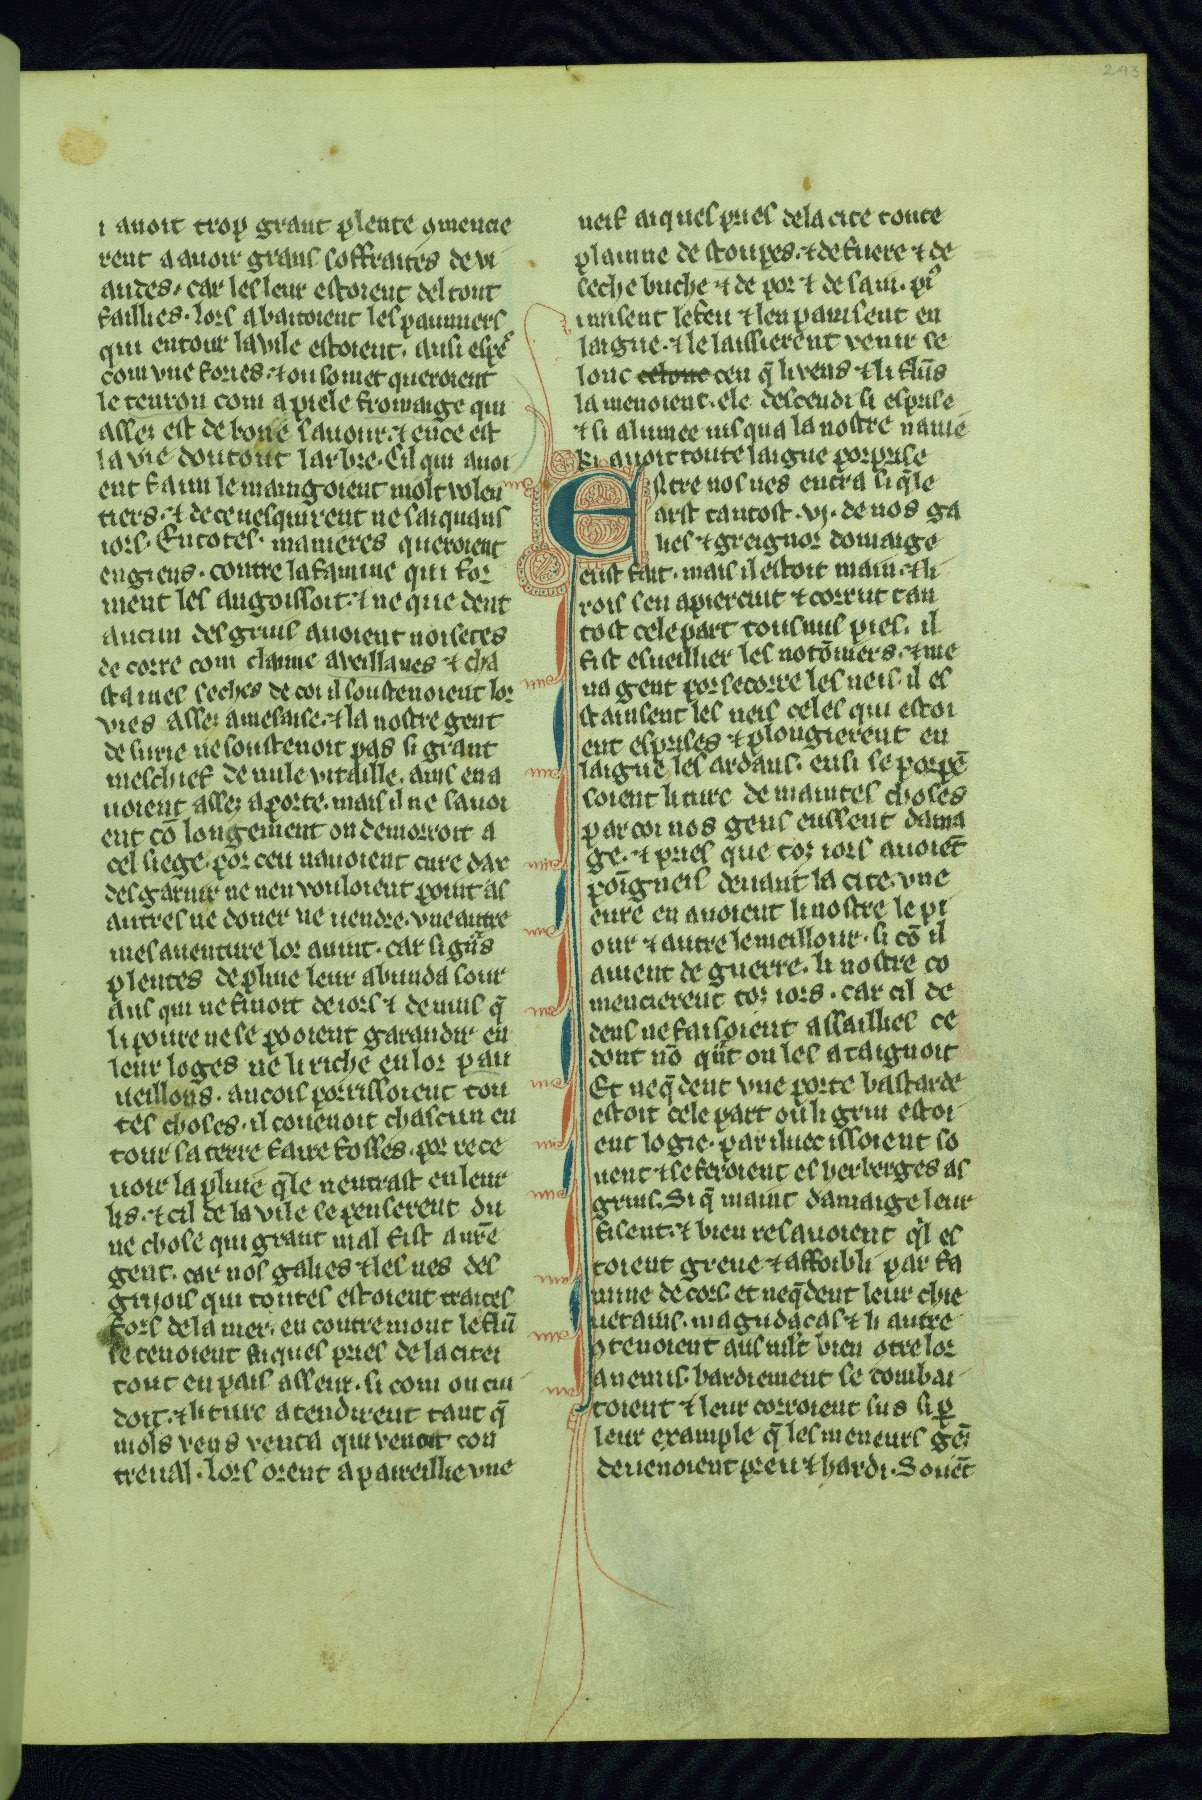 243
i avoit trop grant plente 9mencie
rent a avoir grans soffraites de vi
andes. car les leur estoient del tout
faillies. lors abatoient les paumiers
qui entour la vile estoient. ausi espes
com vne fories. ⁊ ou somet queroient
le tenron com apiele fromaige qui
assez est de bone savour. ⁊ en ce est
la vie dou tout larbre. Cil qui avoi
ent faim le maingoient molt volen
tiers. ⁊ de ce vesquirent ne sai quans
iors. En totes manieres queroient
engiens. contre la famine qui for
ment les angoissoit. ⁊ ne que dent
aucun des griuis avoient noisetes
de corre com claime avellanes ⁊ cha
staines seches de coi il soustenoient lor
vies assez amesaise. ⁊ la nostre gent
de surie ne soustenoit pas si grant
meschief de nule vitaille. ains en a
uoient assez aporte. mais il ne savoi
ent co᷃ longement on demorroit a
cel siege. por ceu navoient cure dax
desgarnir ne neu vouloient point as
autres ne doner ne vendre. vne autre
mesaventure lor avint. car si gn̄s
plentes de pluie leur abunda sour
aus qui ne finoit de iors ⁊ de nuis q̄
li poure ne se pooient garandir en
leur loges ne li riche en lor pau
ueillons. ancois porrissoient tou
tes choses. il couenoit chascun en
tour sa terre faire fosses. por rece
uoir la pluie q̄le nentrast en leur
lis. ⁊ cil de la vile se penserent du
ne chose qui grant mal fist a nr̄e
gent. car nos galies ⁊ les nes des
grijois qui toutes estoient traites
fors de la mer. en contremont le flū
se tenoient aiques pries de la citei
tout en pais asseur. si com on cui
doit. ⁊ li turc atendirent tant q̄
mols vens venta qui venoit con
treual. lors orent apareillie vne
neif aiques pries de la cite toute
plainne de stoupes. ⁊ de fuerre ⁊ de
seche buche ⁊ de poz ⁊ de sain. pꝰ
i misent le feu ⁊ len painsent en
laigue. ⁊ le laissierent venir se
lonc celonc ceu q̄ li vens ⁊ li flūs
la menoient. ele descendi si esprise
⁊ si alumee iusqua la nostre navie
ki avoit toute laigue porprise
Entre nos nes entra si q̄le
arst tantost .vj. de nos ga
lies ⁊ greignor domaige
eust fait. mais il estoit main. ⁊ li
rois sen apiercuit ⁊ corrut tan
tost cele part tous nus pies. il
fist esueillier les notōniers. ⁊ me
na gent por secorre les neis. il es
stainsent les neis celes qui estoi
ent esprises ⁊ plougierent en
laigue les ardans. ensi se porpē
soient li turc de maintes choses
par coi nos gens eussent dama
ge. ⁊ pries que toz iors avoiēt
poīgneis deuant la cite. vne
eure en avoient li nostre le pi
our ⁊ autre le meillour. si cō il
avient de guerre. li nostre co
mencierent toz iors. car cil de
dens ne faisoient assaillies ce
dont nō qn̄t on les ataignoit
Et neq̄dent vne porte bastarde
estoit cele part ou li griu estoi
ent logie. par iluec issoient so
vent ⁊ se feroient es herberges as
griuis. Si q̄ maint damaige leur
fisent. ⁊ bien resavoient q̄l es
toient greue ⁊ affoibli par fa
mine de cors. et neq̄dent leur chie
uetains. magudacas ⁊ li autre
9tenoient aus mlt̄ bien 9tre lor
anemis. hardiement se combai
toient ⁊ leur corroient sus si p̱
leur example q̄ les meneurs gēz
devenoient preu ⁊ hardi. Souēt